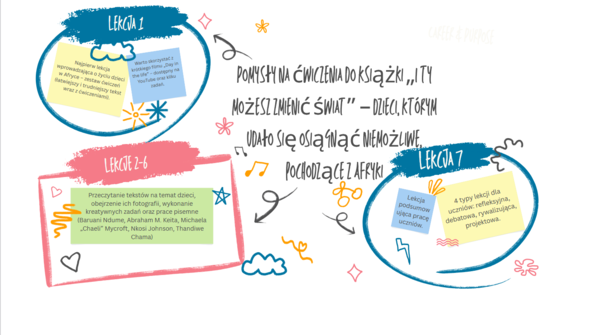 LEKCJA 1
Najpierw lekcja
wprowadzająca o życiu dzieci
w Afryce – zestaw ćwiczeń
(łatwiejszy i trudniejszy tekst
wraz z ćwiczeniami)
Warto skorzystać z
krótkiego filmu „Day in
the life” – dostępny na
YouTube oraz kilku
zadań.
POMYSŁY NA ĆWICZENIA DO KSIĄŻKI „I TY
MOŻESZ ZMIENIĆ ŚWIAT” – DZIECI, KTÓRYM
UDAŁO SIĘ OSIĄGNĄĆ NIEMOŻLIWE,
POCHODZĄCE Z AFRYKI
LEKCJE 2-6
Przeczytanie tekstów na temat dzieci,
obejrzenie ich fotografii, wykonanie
kreatywnych zadań oraz prace pisemne
(Baruani Ndume, Abraham M. Keita, Michaela
„Chaeli” Mycroft, Nkosi Johnson, Thandiwe
Chama)
LEKCJA 7
Lekcja
podsumow
ująca pracę
uczniów.
4 typy lekcji dla
uczniów: refleksyjna,
debatowa, rywalizująca,
projektowa.